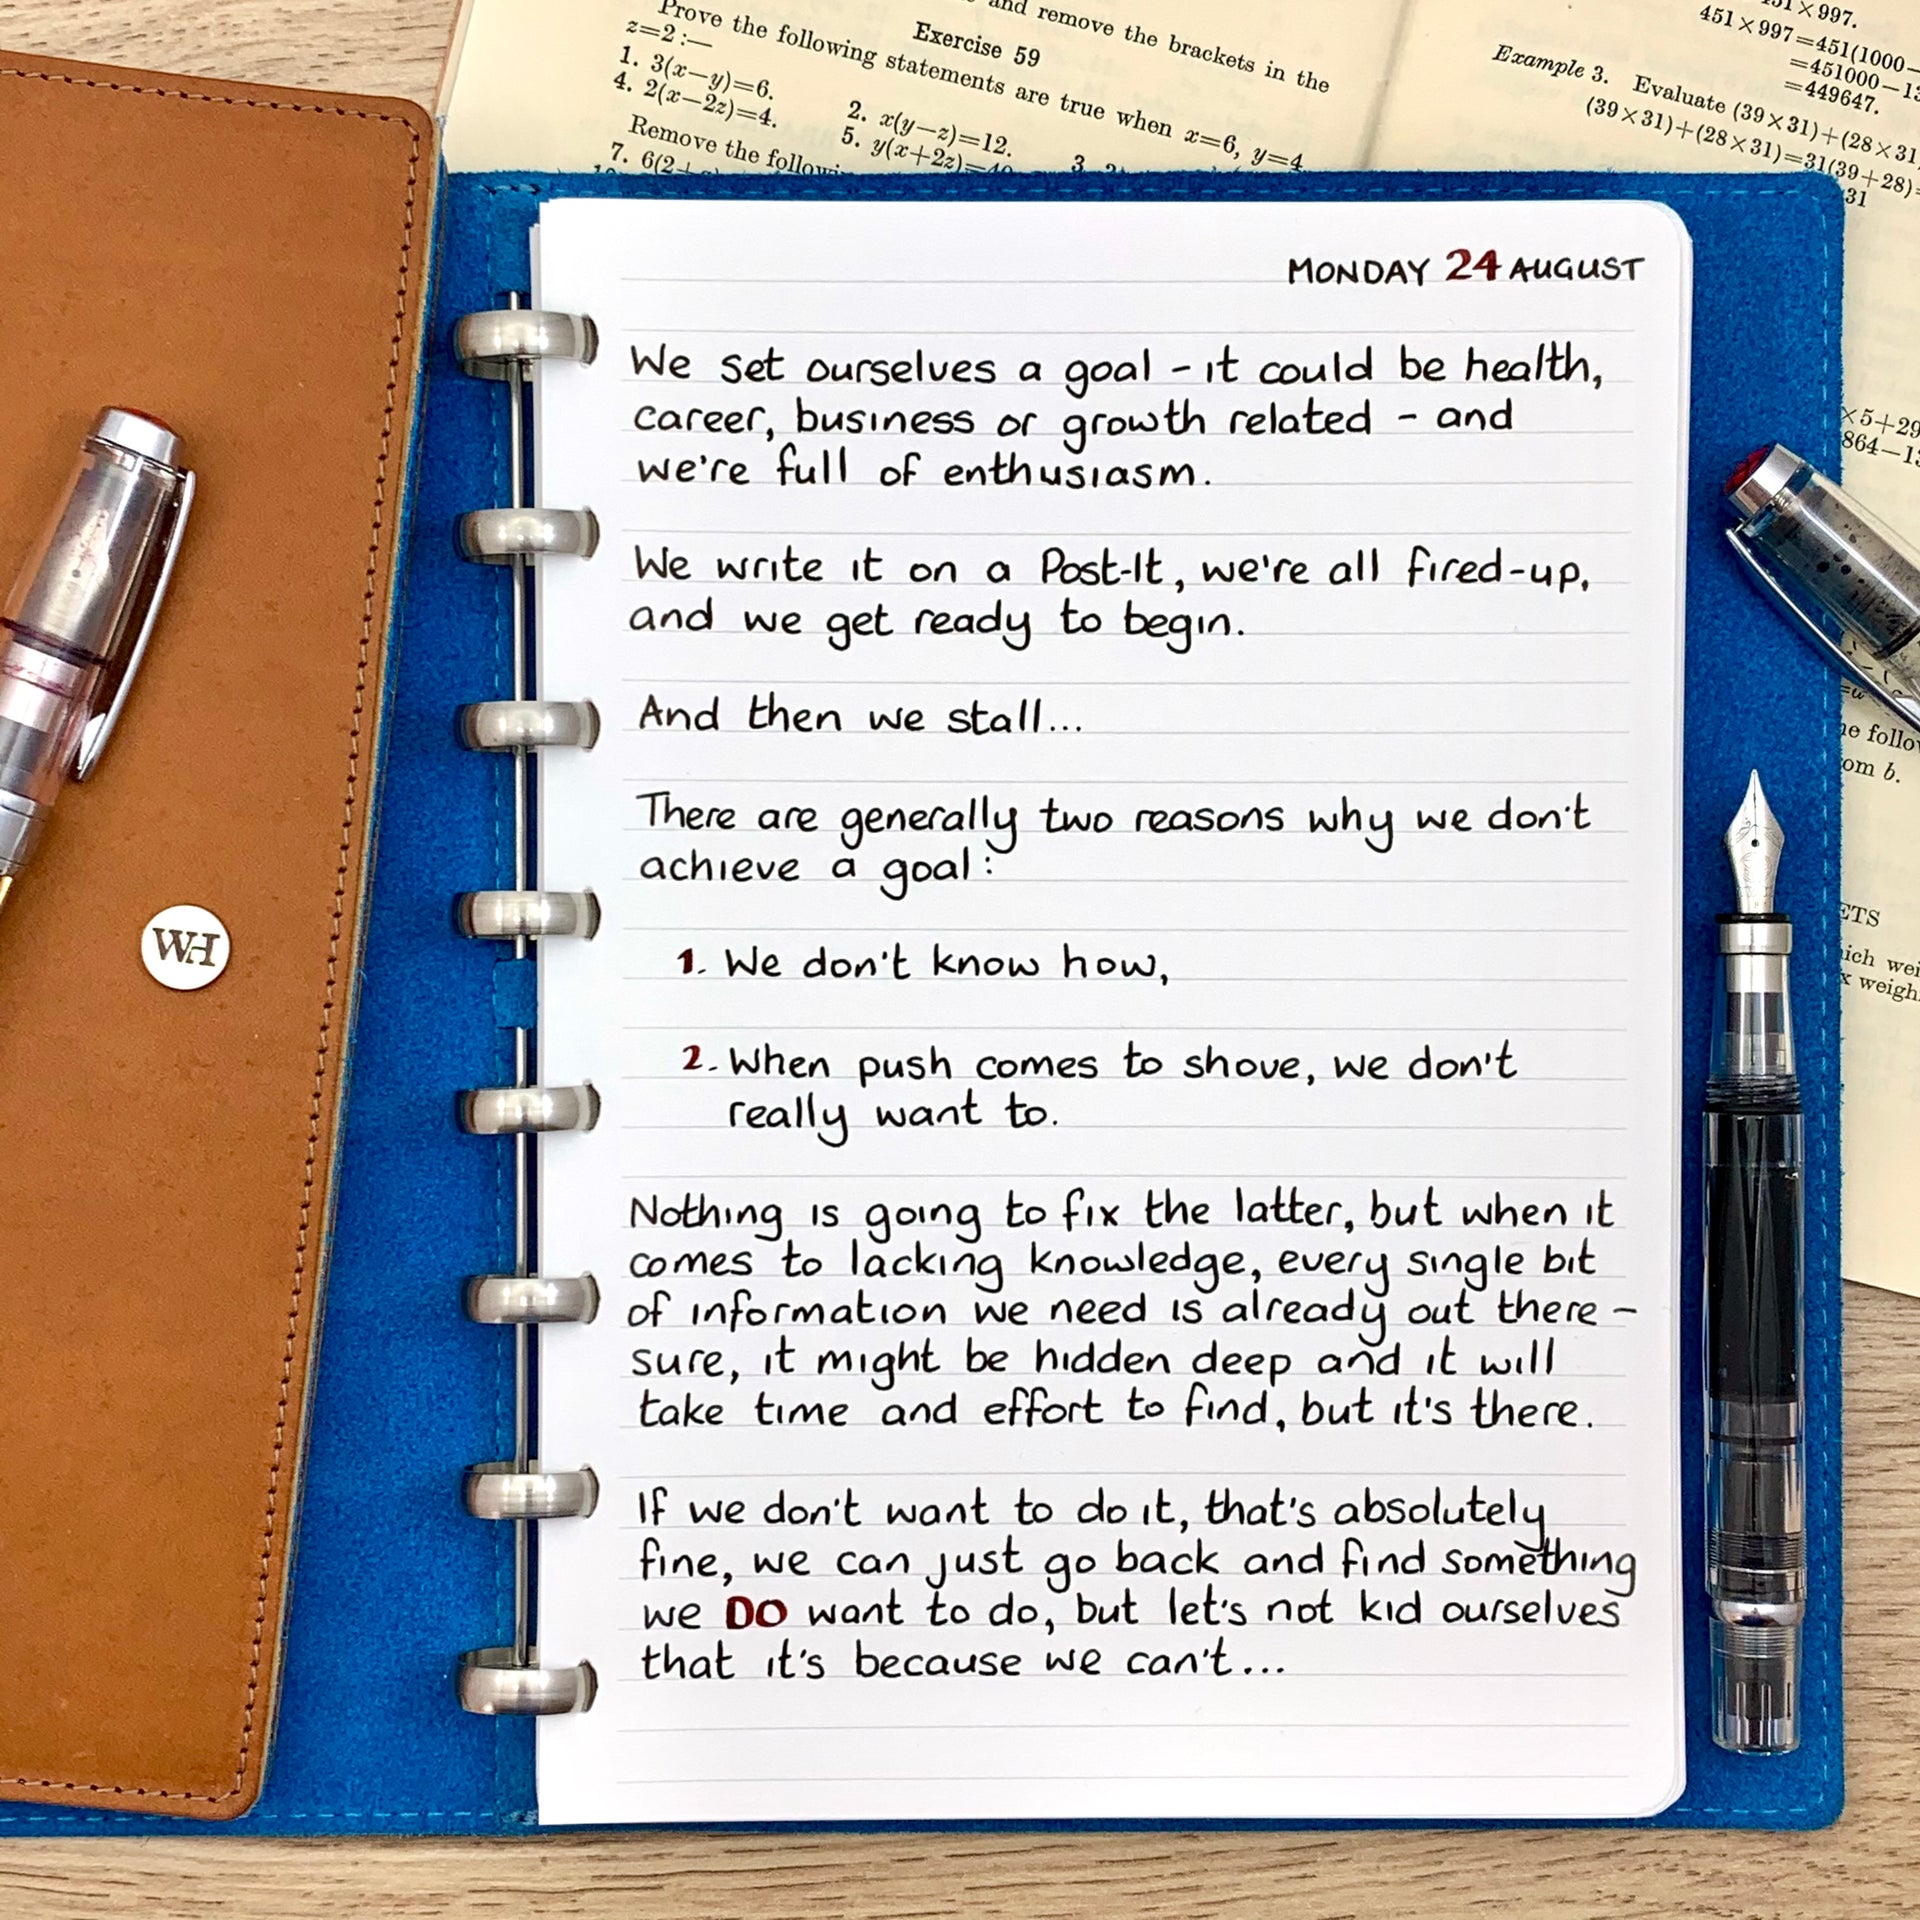 and remove the brackets in the
Exercise 59
Prove the following statements are true when x=6, y=4
z=2:—
1. 3(x—y)=6.
2. x(y—z)=12.
3.
4. 2(x—2z)=4.
5. y(x+2z)=40
Remove the following
7. 6(2+
451×997.
451×997=451(1000—
=451000—13
=449647.
Example 3. Evaluate (39×31)+(28×31
(39×31)+(28×31)=31(39+28)=
31
×5+29
864—13
he follow
om b.
ETS
ich wei
x weigh
WH
MONDAY 24 AUGUST
We set ourselves a goal - it could be health,
career, business or growth related - and
we're full of enthusiasm.
We write it on a Post-It, we're all fired-up,
and we get ready to begin.
And then we stall...
There are generally two reasons why we don't
achieve a goal:
1. We don't know how,
2. When push comes to shove, we don't
really want to.
Nothing is going to fix the latter, but when it
comes to lacking knowledge, every single bit
of information we need is already out there -
sure, it might be hidden deep and it will
take time and effort to find, but it's there.
If we don't want to do it, that's absolutely
fine, we can just go back and find something
we DO want to do, but let's not kid ourselves
that it's because we can't...